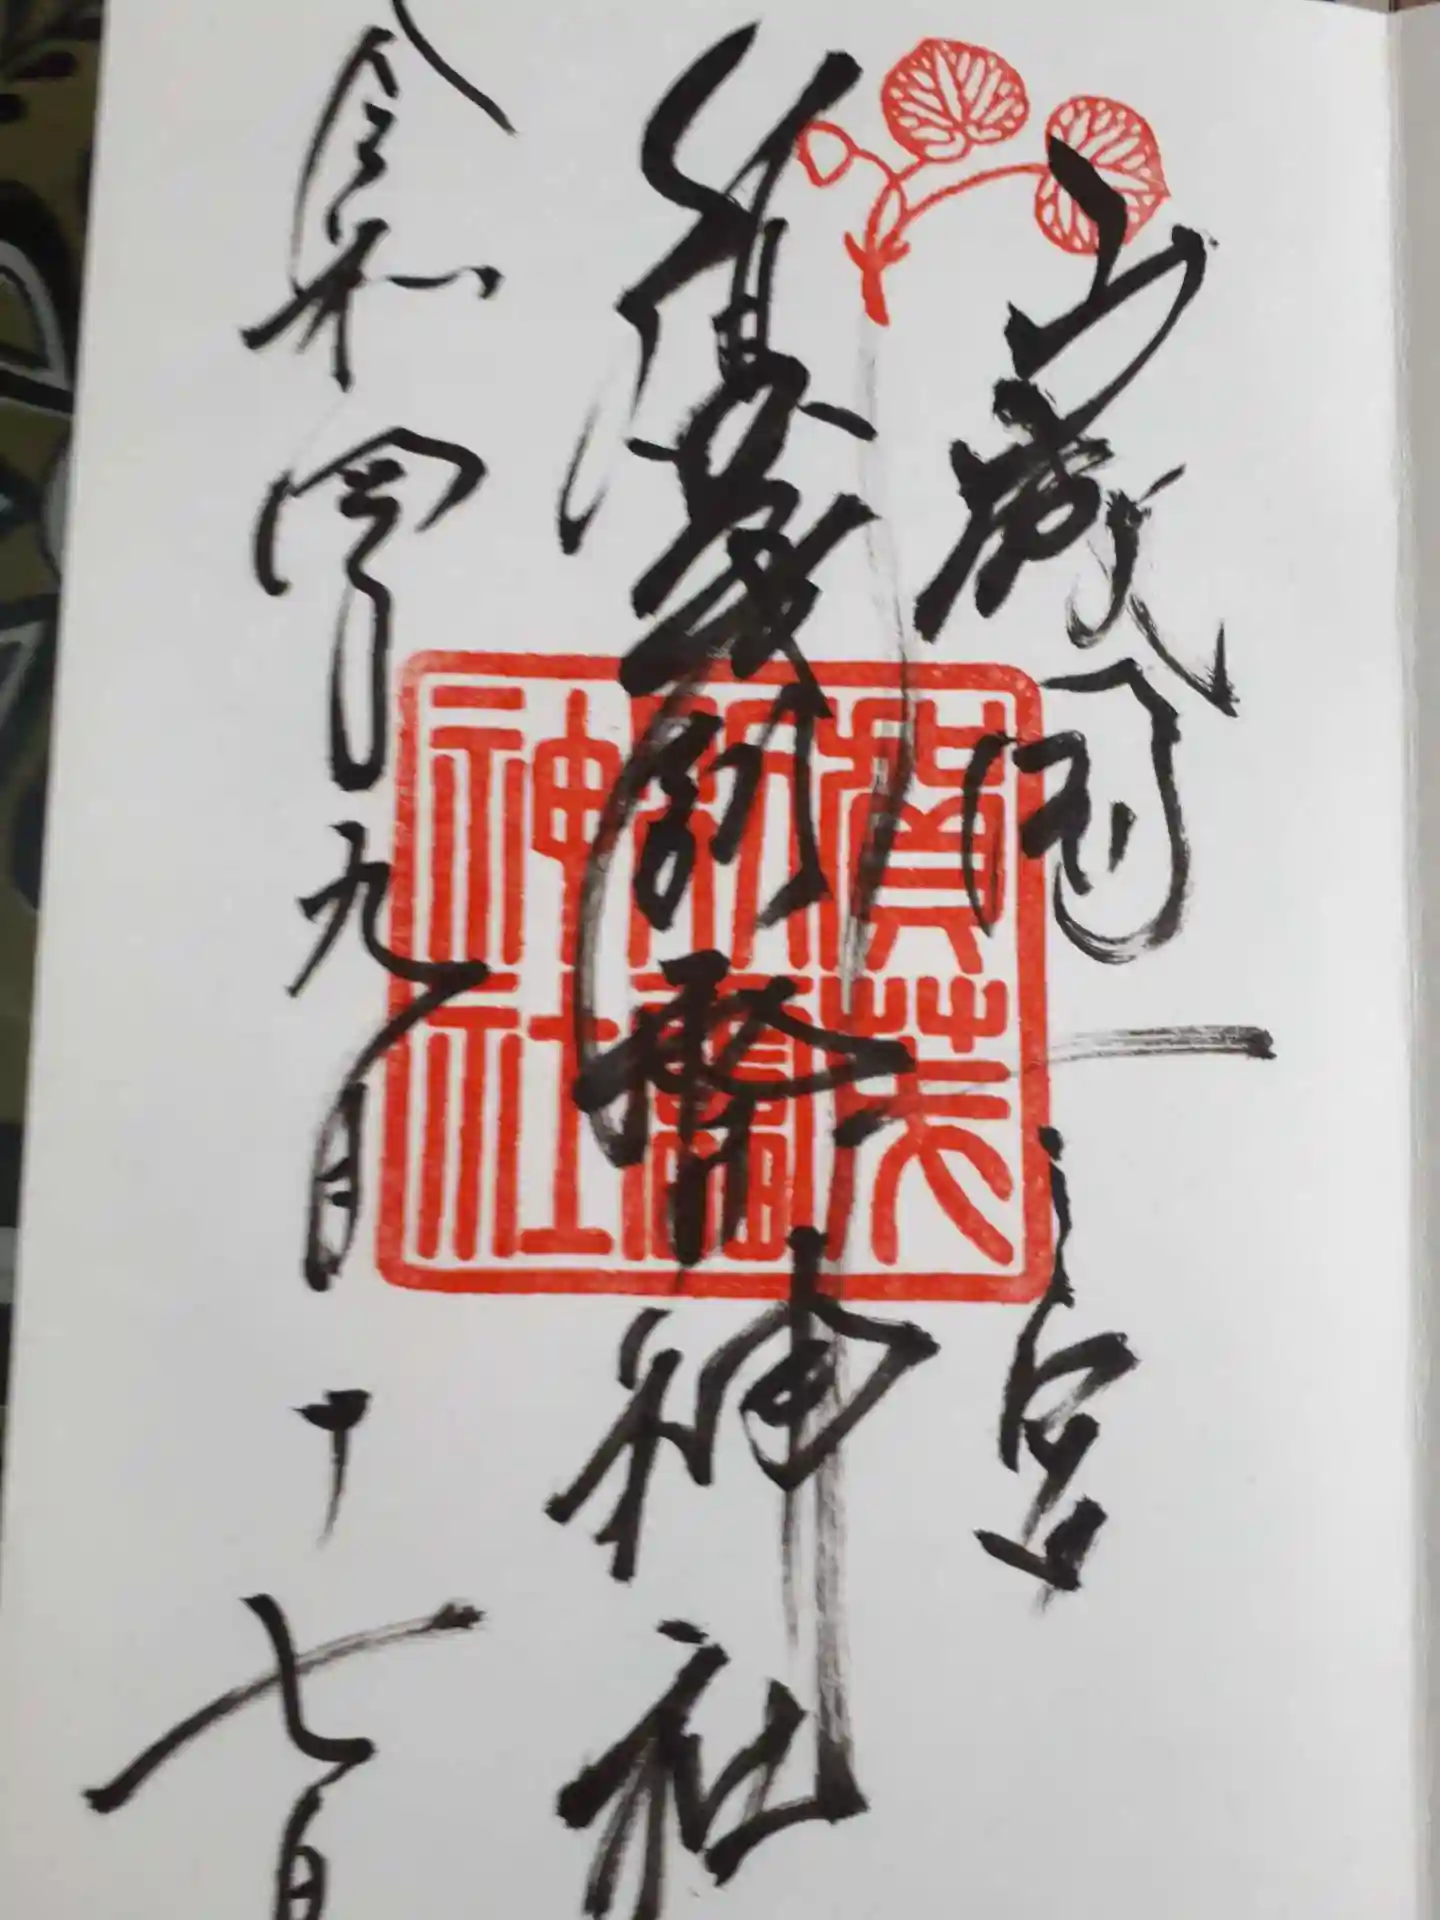 山城国一之宮
賀茂別雷神社
令和四年九月十七日
賀茂
別雷
神社